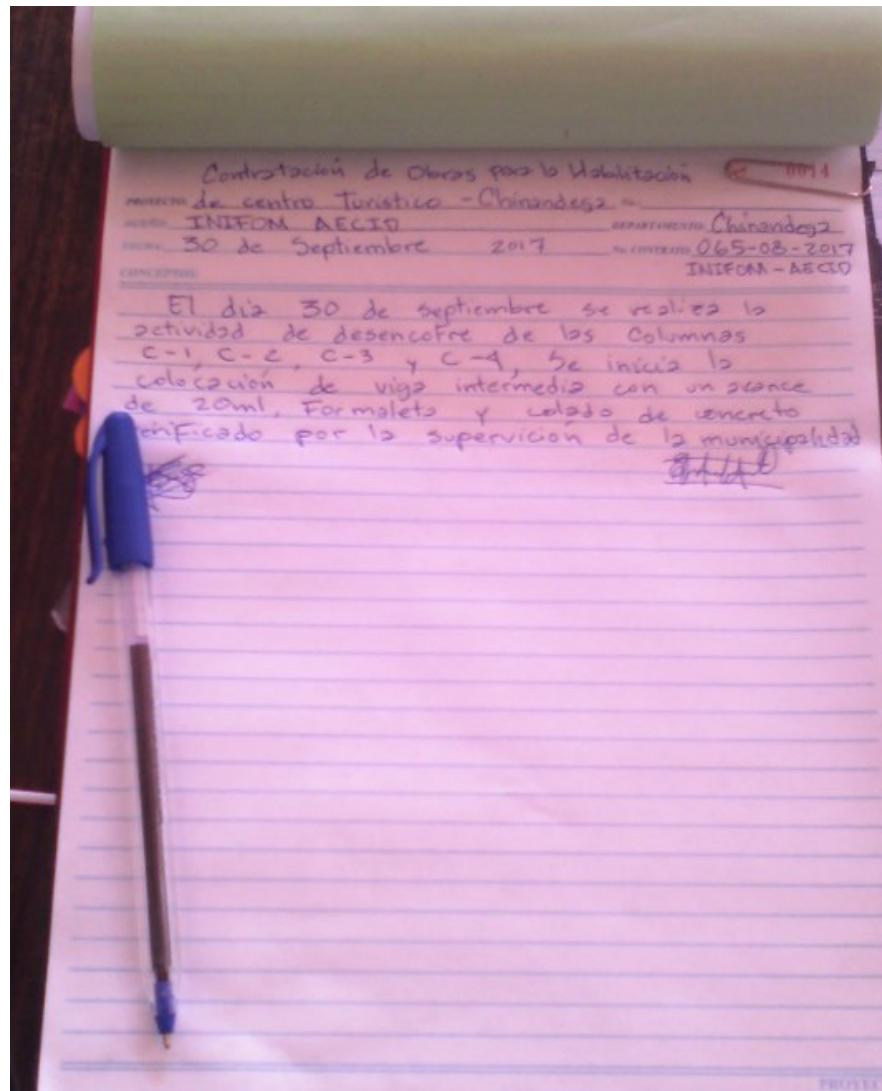 Contratación de Obras para la Habilitación
PROYECTO: de centro Turístico - Chinandega
INIFOM AECID DEPARTAMENTO Chinandega
FECHA: 30 de Septiembre 2017 No. CONTRATO 065-08-2017
CONCEPTOS: INIFOM - AECID
El día 30 de septiembre se realiza la
actividad de desencofre de las Columnas
C-1, C-2, C-3 y C-4, Se inicia la
colocación de viga intermedia con un avance
de 20ml, Formaleta y colado de concreto
verificado por la supervición de la municipalidad